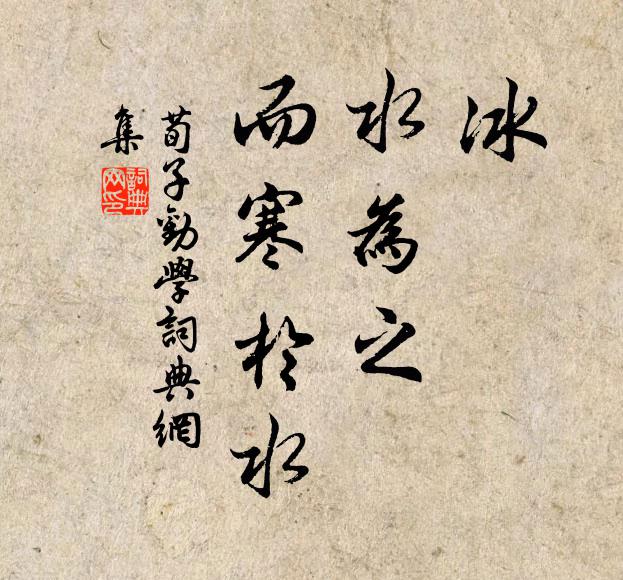 冰
水為之
而寒於水
荀子勸學詞典網
集
詞典
网印